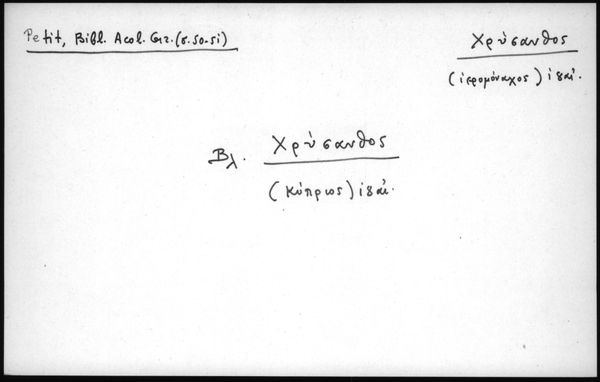 Petit, Bibl. Acol. Gr. (σ. 50-51)
Χρύσανθος
(ιερομόναχος) ιη' αἰ.
Βλ. Χρύσανθος
(Κύπριος) ιη' αἰ.